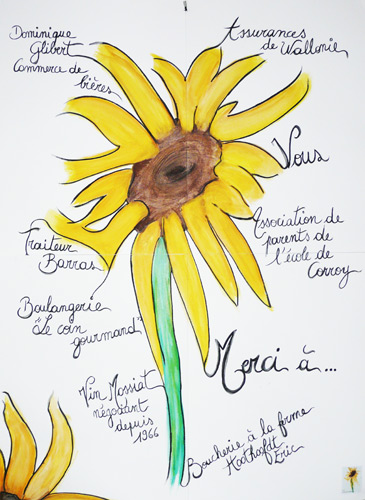 Dominique
Glibert
Commerce de
bières
Assurances
de Wallonie
Vous
Association de
parents de
l'école de
Corroy
Traiteur
Barras
Boulangerie
"Le coin
gourmand"
Merci à...
Vin Mossiat
négociant
depuis
1966
Boucherie à la ferme
Eric